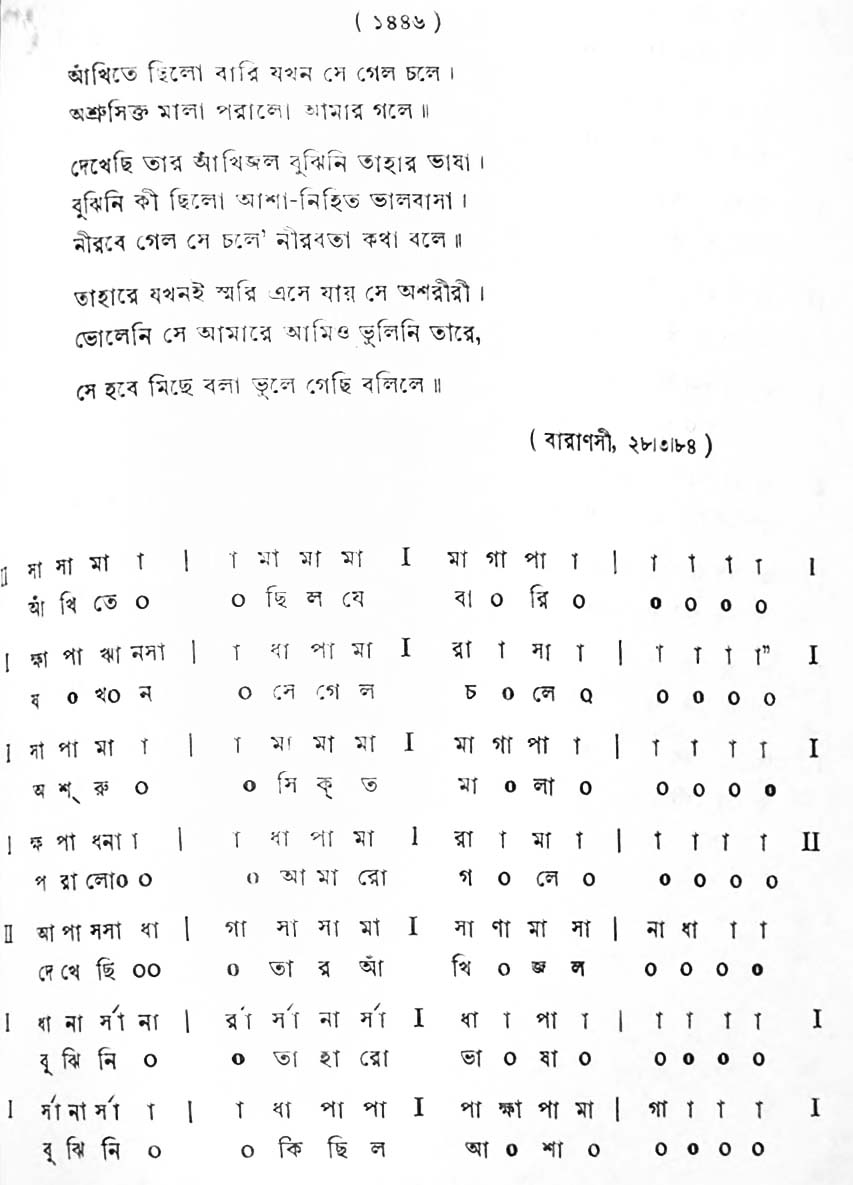 ( ১৪৪৬ )
আঁখিতে ছিলো বারি যখন সে গেল চলে ।
অশ্রুসিক্ত মালা পরালো আমার গলে ॥
দেখেছি তার আঁখিজল বুঝিনি তাহার ভাষা ।
বুঝিনি কী ছিলো আশা-নিহিত ভালবাসা ।
নীরবে গেল সে চলে' নীরবতা কথা বলে ॥
তাহারে যখনই স্মরি এসে যায় সে অশরীরী ।
ভোলেনি সে আমারে আমিও ভুলিনি তারে,
সে হবে মিছে বলা ভুলে গেছি বলিলে ॥
( বারাণসী, ২৮।৩।৮৪ )
II সা সা মা া | া মা মা মা I মা গা পা া | া া া া I
আঁ খি তে ০ ০ ছি ল যে বা ০ রি ০ ০ ০ ০ ০
I ক্ষা পা ঋা নসা | া ধা পা মা I রা া সা া | া া া া" I
য ০ খ০ ন ০ সে গে ল চ ০ লে ০ ০ ০ ০ ০
I সা পা মা া | া মা মা মা I মা গা পা া | া া া া I
অ শ্ রু ০ ০ সি ক্ ত মা ০ লা ০ ০ ০ ০ ০
I ক্ষ পা ধনা া | া ধা পা মা I রা া মা া | া া া া II
প রা লো০ ০ ০ আ মা রো গ ০ লে ০ ০ ০ ০ ০
II আ পা সসা ধা | গা সা সা মা I সা ণা মা সা | না ধা া া
দে খে ছি ০০ ০ তা র আঁ খি ০ জ ল ০ ০ ০ ০
I ধা না র্সা না | র্রা র্সা না র্সা I ধা া পা া | া া া া I
বু ঝি নি ০ ০ তা হা রো ভা ০ ষা ০ ০ ০ ০ ০
I র্সা না র্সা া | া ধা পা পা I পা ক্ষা পা মা | গা া া া I
বু ঝি নি ০ ০ কি ছি ল আ ০ শা ০ ০ ০ ০ ০